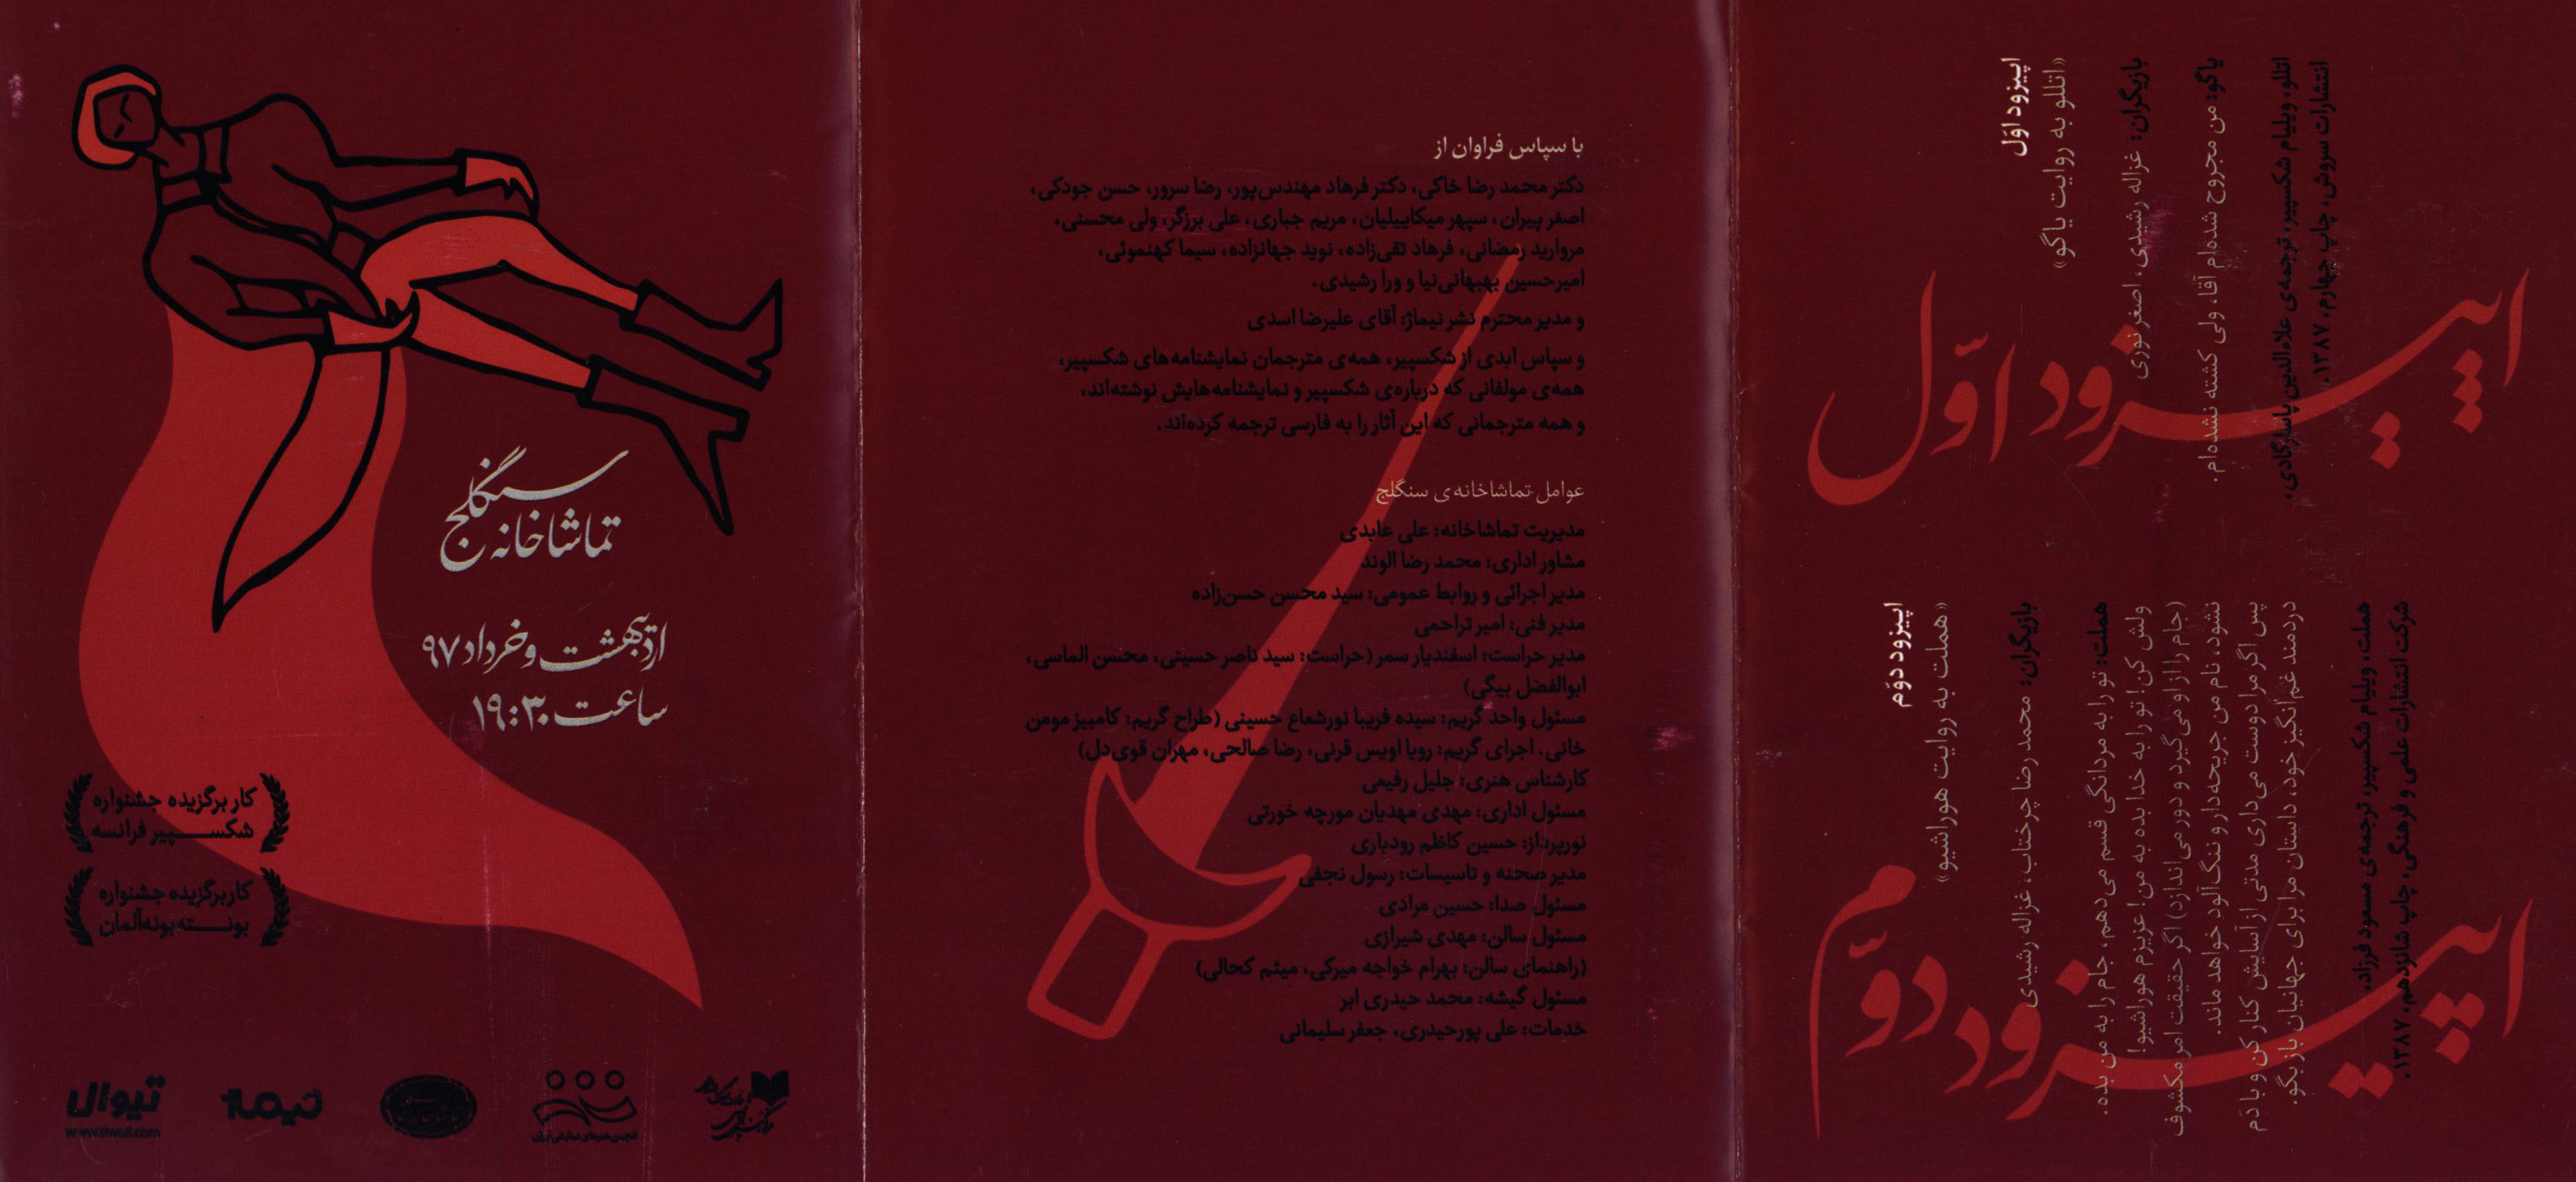 اپیزود اوّل
«اتللو به روایت یاگو»
بازیگران: غزاله رشیدی، اصغر نوری
یاگو: من مجروح شده‌ام آقا، ولی کشته نشده‌ام.
اتللو، ویلیام شکسپیر، ترجمه‌ی علاءالدین پاسارگادی،
انتشارات سروش، چاپ چهارم، ۱۳۸۷.
اپیزود اوّل
اپیزود دوّم
«هملت به روایت هوراشیو»
بازیگران: محمد رضا چرختاب، غزاله رشیدی
هملت: تو را به مردانگی قسم می‌دهم، جام را به من بده.
ولش کن! تو را به خدا بده به من! عزیزم هوراشیو!
(جام را از او می‌گیرد و دور می‌اندازد) اگر حقیقت امر مکشوف
نشود، نام من جریحه‌دار و ننگ‌آلود خواهد ماند.
پس اگر مرا دوست می‌داری مدتی از آسایش کنار کن و با دَم
دردمند غم‌انگیز خود، داستان مرا برای جهانیان بازگو.
هملت، ویلیام شکسپیر، ترجمه‌ی مسعود فرزاد،
شرکت انتشارات علمی و فرهنگی، چاپ شانزدهم، ۱۳۸۷.
اپیزود دوّم
با سپاس فراوان از
دکتر محمد رضا خاکی، دکتر فرهاد مهندس‌پور، رضا سرور، حسن جودکی،
اصغر پیران، سپهر میکاییلیان، مریم جباری، علی برزگر، ولی محسنی،
مروارید رمضانی، فرهاد تقی‌زاده، نوید جهانزاده، سیما کهنموئی،
امیرحسین بهبهانی‌نیا و ورا رشیدی.
و مدیر محترم نشر نیماژ: آقای علیرضا اسدی
و سپاس ابدی از شکسپیر، همه‌ی مترجمان نمایشنامه‌های شکسپیر،
همه‌ی مولفانی که درباره‌ی شکسپیر و نمایشنامه‌هایش نوشته‌اند،
و همه مترجمانی که این آثار را به فارسی ترجمه کرده‌اند.
عوامل تماشاخانه‌ی سنگلج
مدیریت تماشاخانه: علی عابدی
مشاور اداری: محمد رضا الوند
مدیر اجرائی و روابط عمومی: سید محسن حسن‌زاده
مدیر فنی: امیر تراحمی
مدیر حراست: اسفندیار سمر (حراست: سید ناصر حسینی، محسن الماسی،
ابوالفضل بیگی)
مسئول واحد گریم: سیده فریبا نورشعاع حسینی (طراح گریم: کامبیز مومن
خانی، اجرای گریم: رویا اویس قرنی، رضا صالحی، مهران قوی‌دل)
کارشناس هنری: جلیل رفیعی
مسئول اداری: مهدی مهدیان مورچه خورتی
نورپرداز: حسین کاظم رودباری
مدیر صحنه و تاسیسات: رسول نجفی
مسئول صدا: حسین مرادی
مسئول سالن: مهدی شیرازی
(راهنمای سالن: بهرام خواجه میرکی، میثم کحالی)
مسئول گیشه: محمد حیدری ابر
خدمات: علی پورحیدری، جعفر سلیمانی
سنگلج
تماشاخانه
اردیبهشت و خرداد ۹۷
ساعت ۱۹:۳۰
کار برگزیده جشنواره
شکسپیر فرانسه
کار برگزیده جشنواره
بونته‌بونه آلمان
انجمن هنرهای نمایشی ایران
تیوال
www.tiwall.com